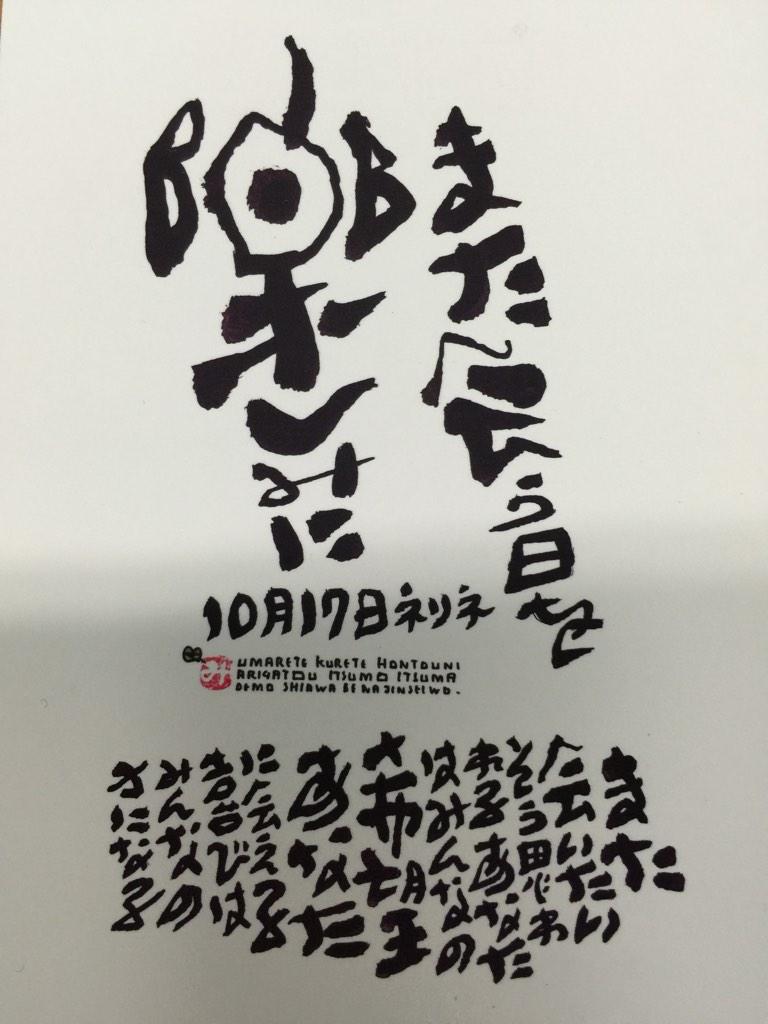 また会う日を
楽しみに
10月17日ネリネ
み
UMARETE KURETE HONTOUNI
ARIGATOU ITSUMO ITSUMA
DEMO SHIAWASENAJINSEIWO.
また
会いたい
そう思わ
れるあなた
はみんなの
希望
あなた
に会える
喜びは
みんなの
になる